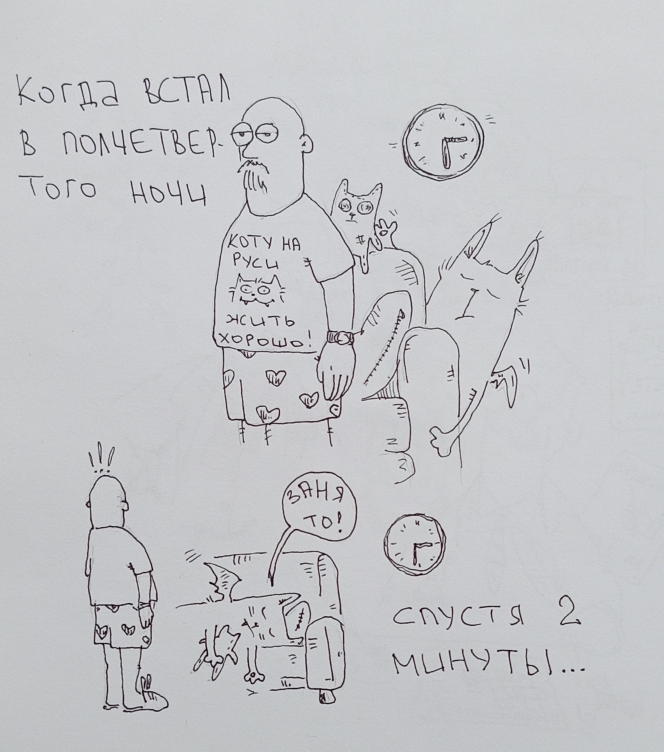 Когда ВСТАЛ
В ПОЛЧЕТВЕР-
ТОГО НОЧИ
КОТУ НА
РУСИ
ЖИТЬ
ХОРОШО!
ЗАНЯ
ТО!
СПУСТЯ 2
МИНУТЫ...